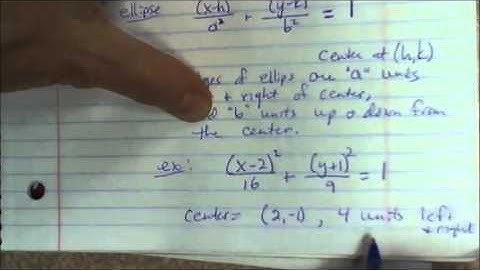 ellipse (x-h)²/a² + (y-k)²/b² = 1
center at (h,k)
of ellips are "a" units
+ right of center,
"b" units up + down from
the center.
ex: (x-2)²/16 + (y+1)²/9 = 1
center= (2,-1), 4 units left
+ right